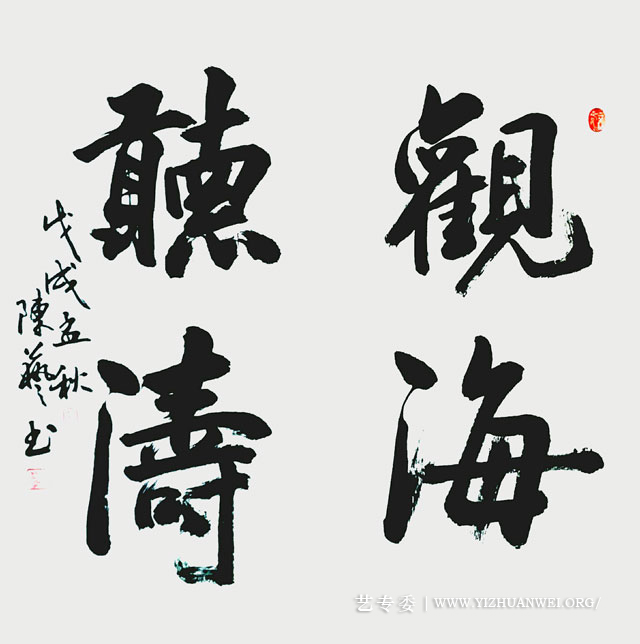 觀海
聽濤
戊戌孟秋
陳藝書
艺专委 | WWW.YIZHUANWEI.ORG/